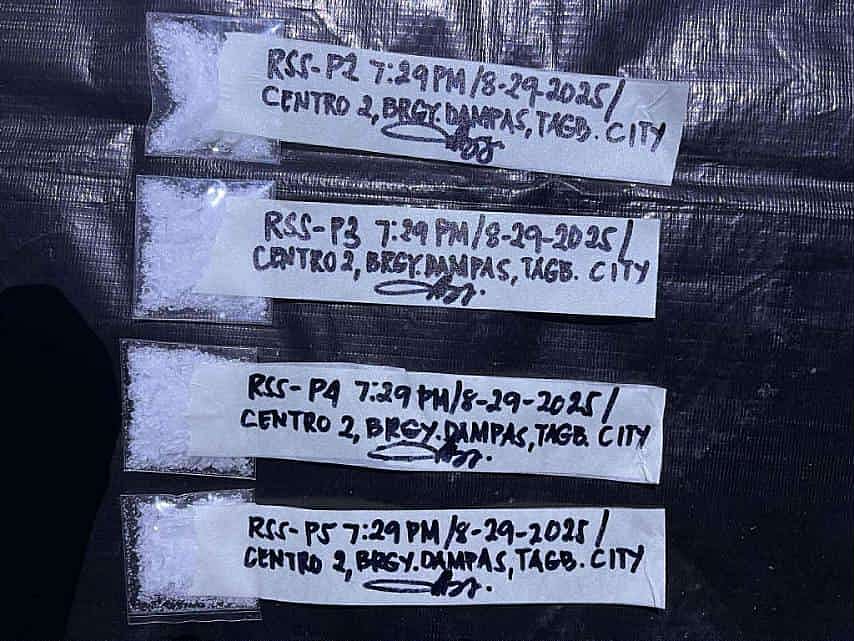 RSS-P2 7:29PM/8-29-2025/
CENTRO 2, BRGY.DAMPAS, TAGB. CITY
RSS-P3 7:29 PM/8-29-2025/
CENTRO 2, BRGY.DAMPAS, TAGB. CITY
RSS-P4 7:29 PM/8-29-2025/
CENTRO 2, BRGY.DAMPAS, TAGB. CITY
RSS-P5 7:29 PM/8-29-2025/
CENTRO 2, BRGY.DAMPAS, TAGB. CITY